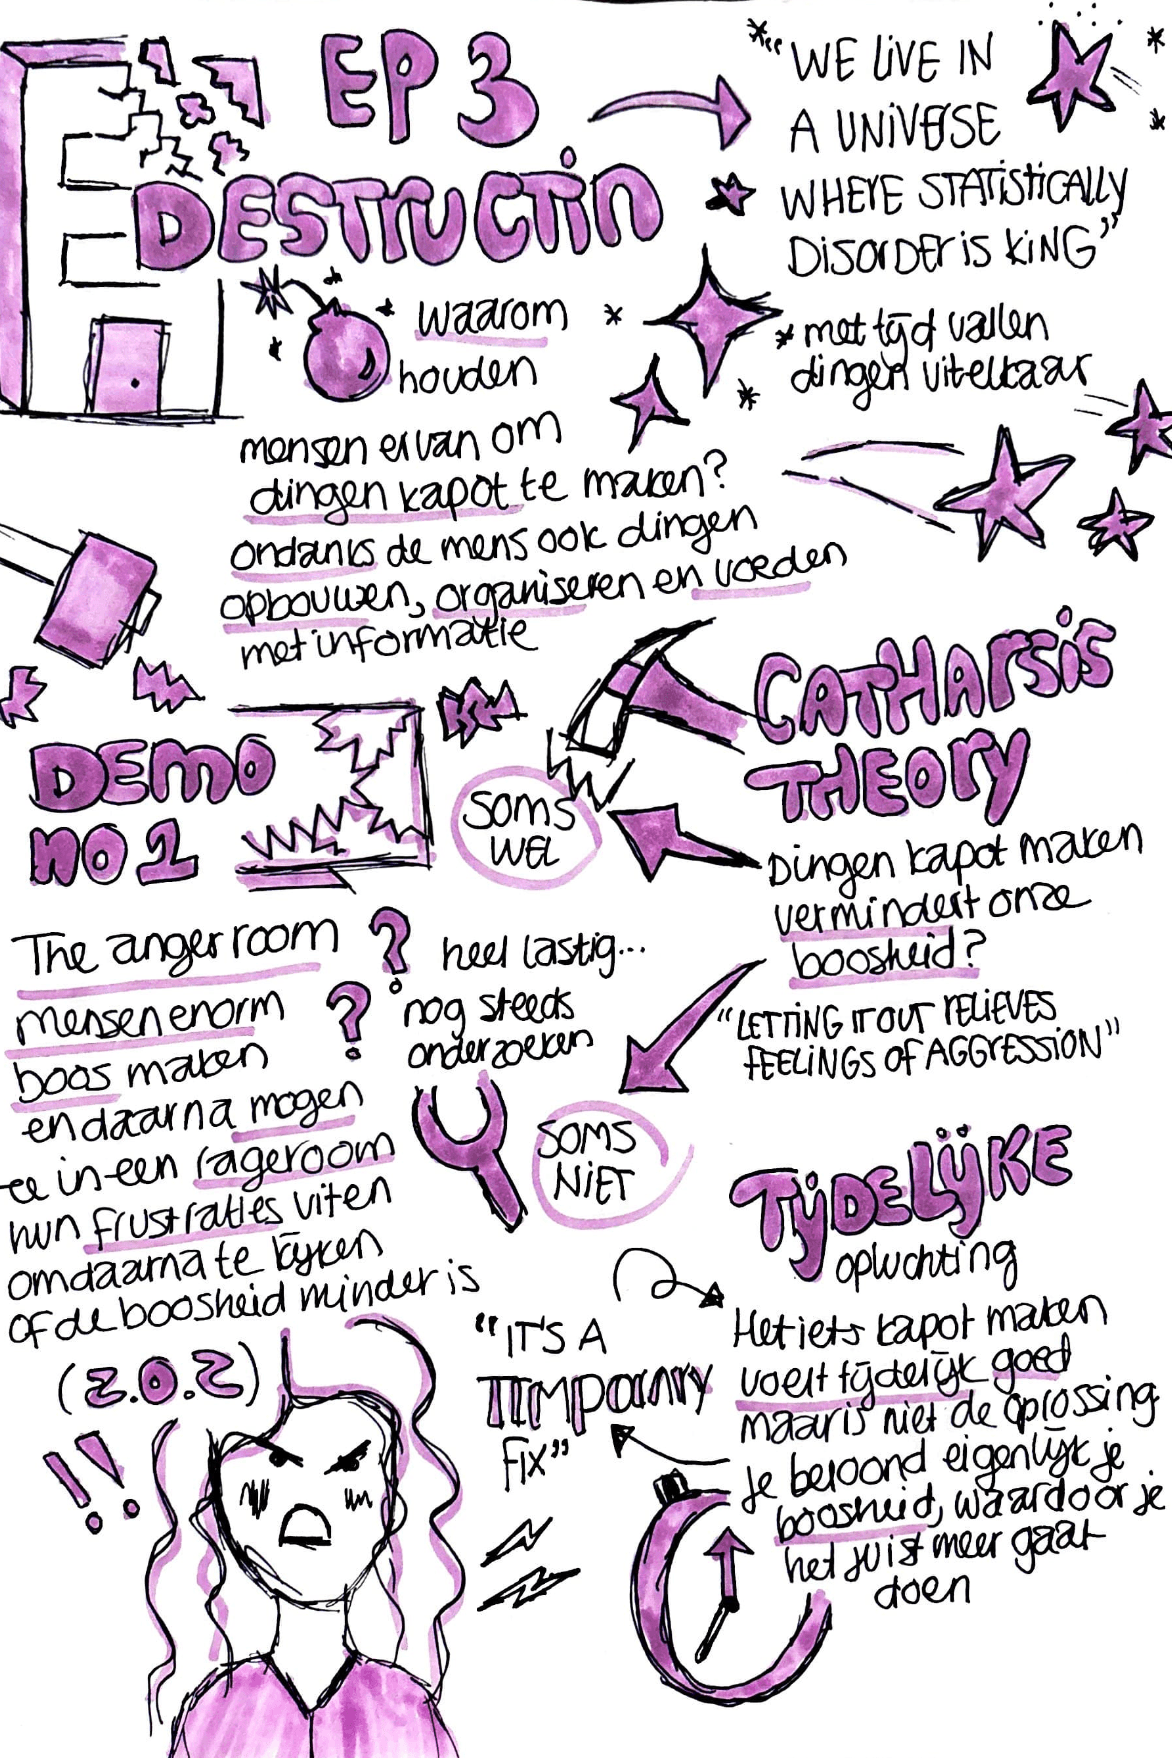 EP 3
DESTRUCTIN
"WE LIVE IN
A UNIVERSE
WHERE STATISTICALLY
DISORDER IS KING"
* met tijd vallen
dingen uit elkaar
waarom
houden
mensen ervan om
dingen kapot te maken?
ondanks de mens ook dingen
opbouwen, organiseren en voeden
met informatie
DEMO
NO 1
The anger room
mensen enorm
boos maken
en daarna mogen
ze in een rageroom
hun frustraties uiten
om daarna te kijken
of de boosheid minder is
(Z.O.Z)
!!
CATHARSIS
THEORY
Dingen kapot maken
vermindert onze
boosheid?
"LETTING IT OUT RELIEVES
FEELINGS OF AGGRESSION"
SOMS
WEL
? heel lastig...
? nog steeds
onderzoeken
SOMS
NIET
TIJDELIJKE
opluchting
Het iets kapot maken
voelt tijdelijk goed
maar is niet de oplossing
Je beloond eigenlijk je
boosheid, waardoor je
het juist meer gaat
doen
"IT'S A
TEMPORARY
FIX"